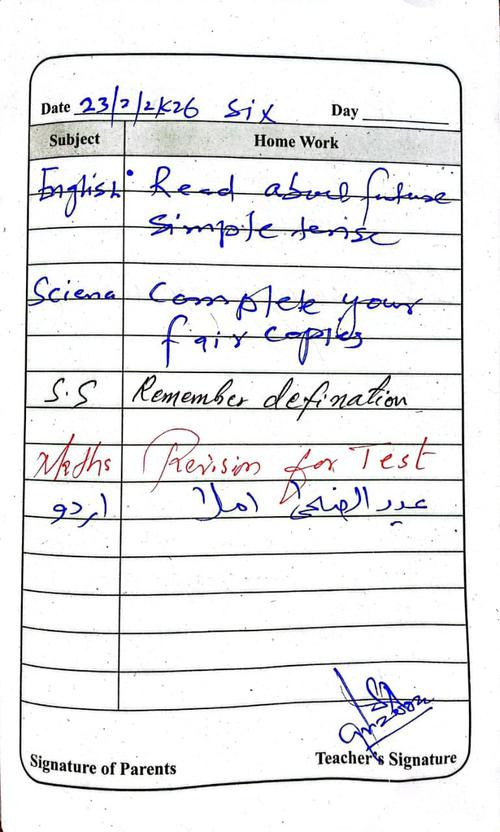 Date 23/2/2k26 Six Day
Subject Home Work
English Read about future
simple tense
Science Complete your
fair copies
S.S Remember defination
Maths Revision for Test
اردو عید الضحیٰ املا
Signature of Parents Teacher's Signature